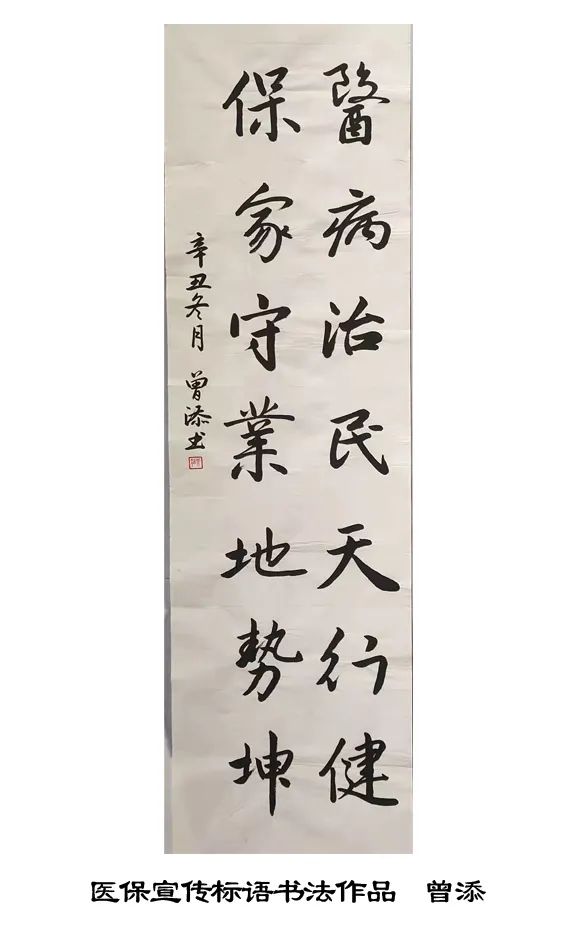 醫病治民天行健
保家守業地勢坤
辛丑冬月 曾添书
医保宣传标语书法作品 曾添